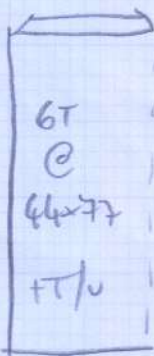 6T
@
44x77
+T/U